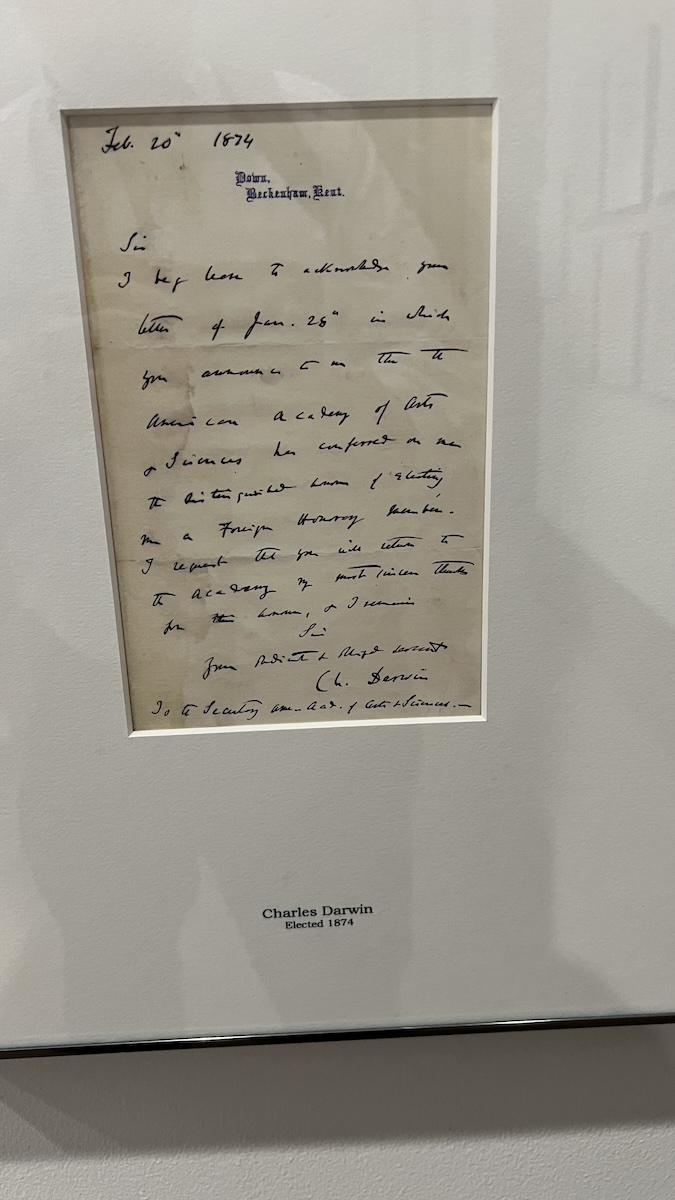 Feb. 20th 1874
Down,
Beckenham, Kent.
Sir
I beg leave to acknowledge your
letter of Jan. 28th in which
you announce to me that the
American Academy of Arts
& Sciences has conferred on me
the distinguished honour of electing
me a Foreign Honorary Member.
I request that you will return to
the Academy my most sincere thanks
for this honour, & I remain
Sir
Your obedient & obliged servant
Ch. Darwin
To the Secretary Am. Acad. of Arts & Sciences.—
Charles Darwin
Elected 1874